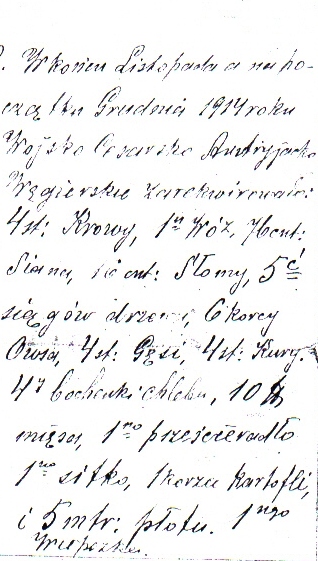 W końcu Listopada a na po-
czątku Grudnia 1914 roku
Wojsko Cesarsko Austryjacko
Węgierskie zarekwirowało:
4 st: Krowy, 1n Wóz, 7 cent:
Siana, cent: Słomy, 5ć
siągów drzewa, 6 korcy
Owsa, 4 st: Gęsi, 4 st: Kury.
4y bochenki chleba, 10
mięsa, 1no prześcieradło
1no sitko, 1 korzec Kartofli,
i 5 mtr. płotu. 1ngo
Wieprzka.